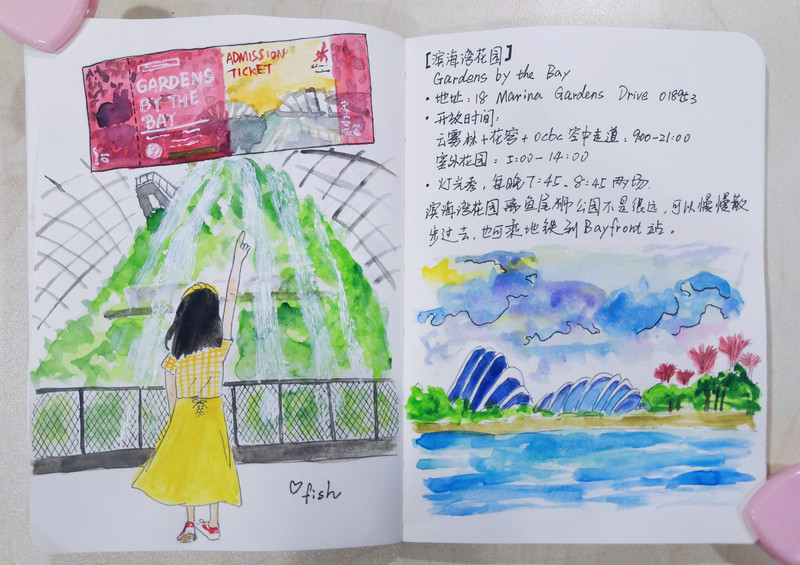 GARDENS
BY THE
BAY
ADMISSION
TICKET
fish
[滨海湾花园]
Gardens by the Bay
·地址:18 Marina Gardens Drive
·开放时间:
云雾林+花穹+ocbc空中走道:900-21:00
室外花园:5:00-14:00
·灯光秀,每晚7:45、8:45 两场.
滨海湾花园离鱼尾狮公园不是很远,可以慢慢散
步过去,也可乘地铁到Bayfront站。